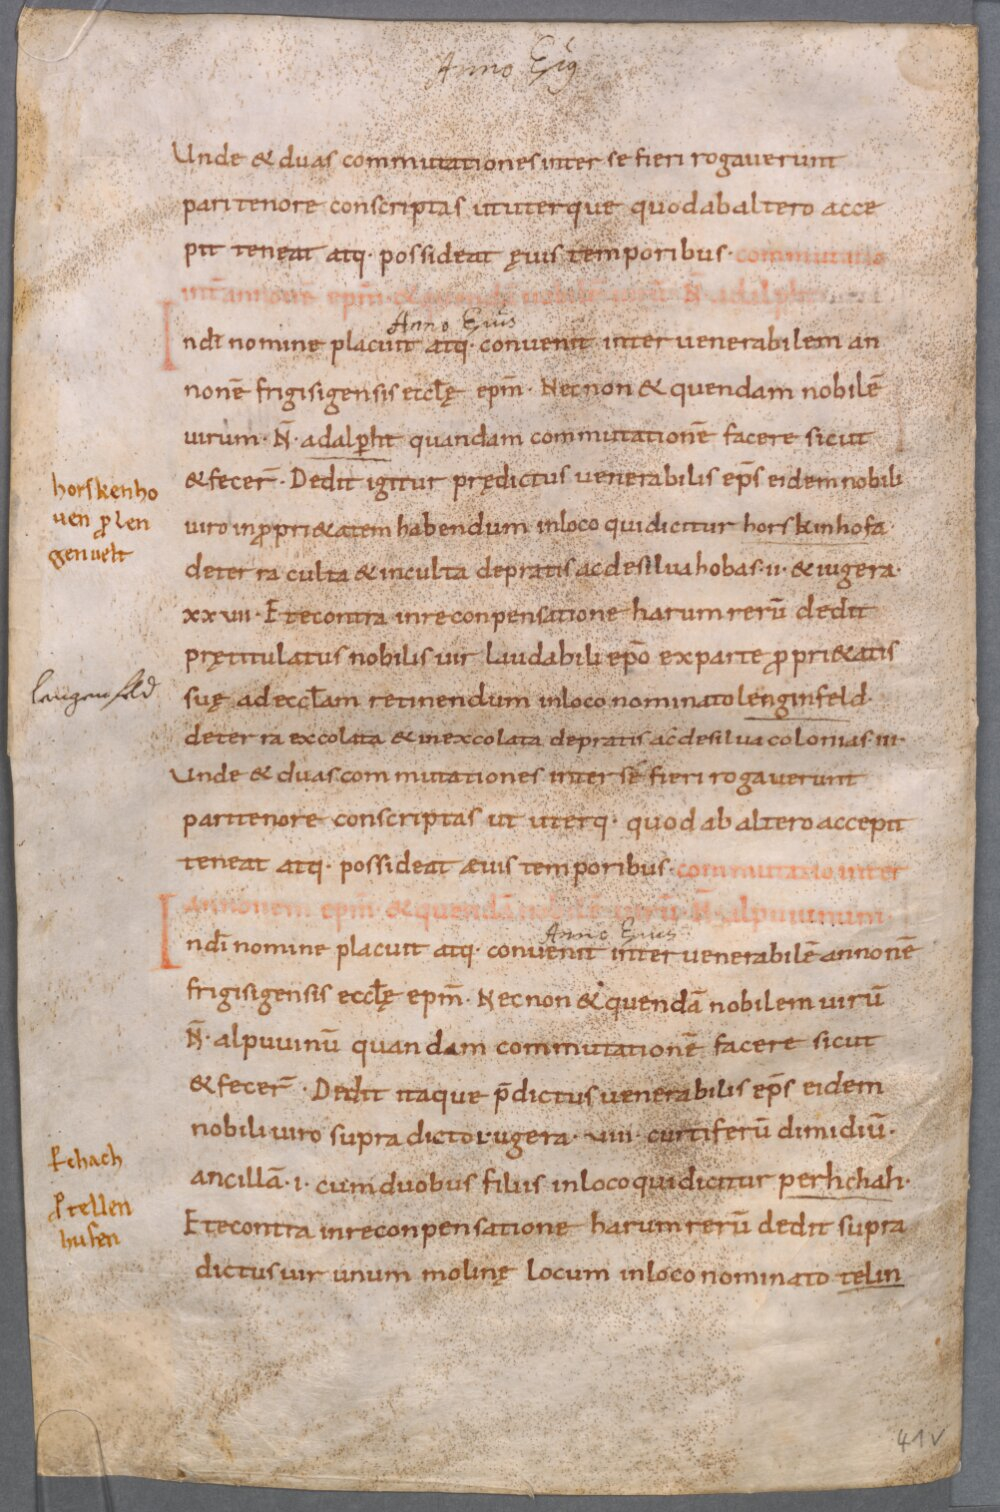 Anno Eiꝯ
Unde & duas commutationes inter se fieri rogaverunt
pari tenore conscriptas ut uterque quod ab altero acce
pit teneat atq· possideat ęuis temporibus· commutatio
int̄ annonē epm̄· & quendā nobilē uirū N̄· adalpht
Anno Eius
Indī nomine placuit atq· convenit inter venerabilem an
nonē frigisigensis eccłę epm̄· Necnon & quendam nobilē
uirum· N̄· adalꝑht quandam commutationē facere sicut
& fecer̄· Dedit igitur prędictus venerabilis ep̄s eidem nobili
horskenho
uiro in ꝓpri&atem habendum in loco qui dicitur horskinhofa·
uen ꝓ len
genuelt
de terra culta & inculta de pratis ac de silva hobas·ii· & iugera·
xxviii· Et econtra in reconpensatione harum rerū dedit
prętitulatus nobilis uir laudabili ep̄o ex parte ꝓpri&atis
lengenfeld
suę ad eccłam retinendum in loco nominato lenginfeld·
de terra excolata & inexcolata de pratis ac de silva colonias·iii·
Unde & duas commutationes inter se fieri rogaverunt
pari tenore conscriptas ut uterq· quod ab altero accepit
teneat atq· possideat ævis temporibus· commutatio inter
annonem epm̄· & quendā nobilē uirū· N̄· alpuuinum·
Anno Eius
Indī nomine placuit atq· convenit inter venerabilē annonē
frigisigensis eccłę epm̄· Necnon & quendā nobilem uirū
N̄· alpuuinū quandam commutationē facere sicut
& fecer̄· Dedit itaque p̄dictus venerabilis ep̄s eidem
nobili uiro supra dicto iugera· viii· curtiferū dimidiū·
ꝑchach
ancillā·i· cum duobus filiis in loco qui dicitur perhchah·
ꝓ tellen
husen
Et econtra in reconpensatione harum rerū dedit supra
dictus uir unum molinę locum in loco nominato telin
41v